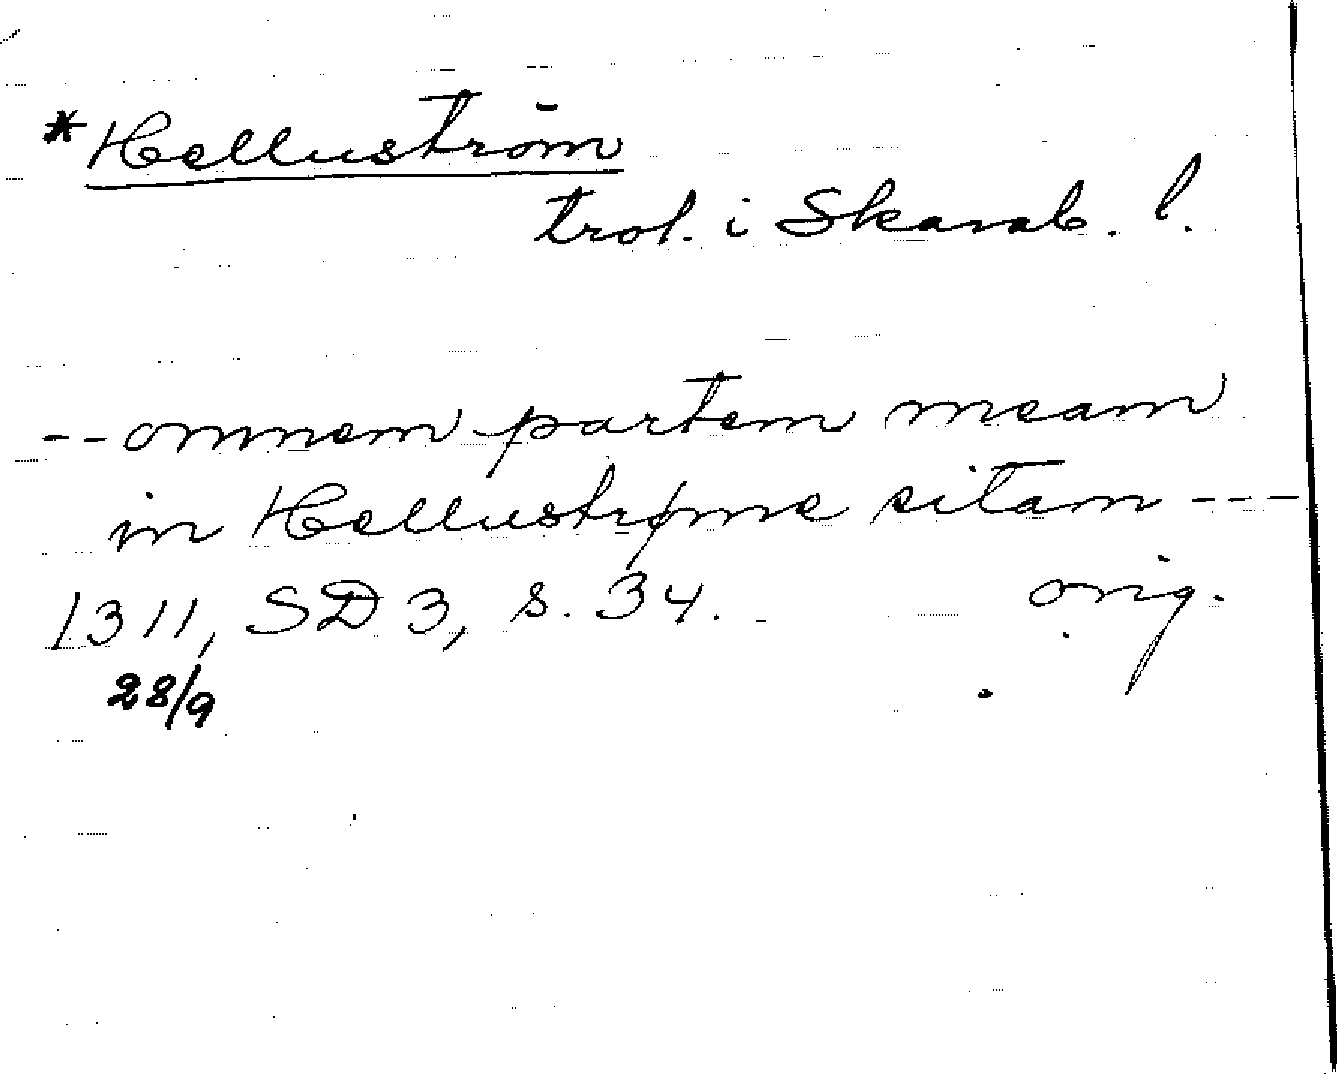 *Helluström
trol. i Skarab. l.
--omnem partem meam
in Hellustrøme sitam ---
1311, SD 3, s. 34. orig.
28/9